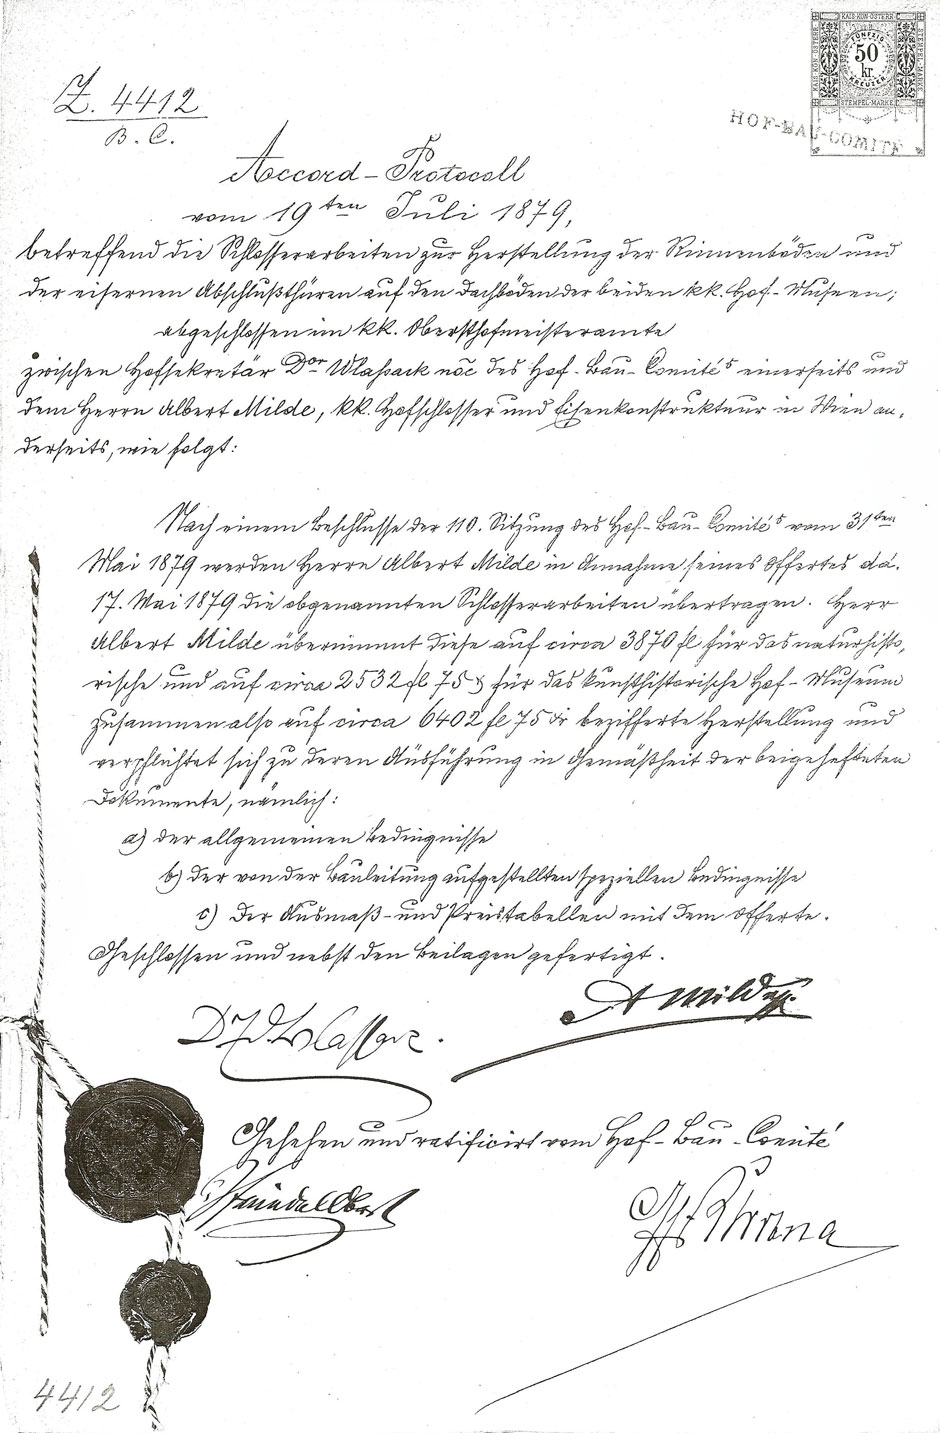 KAIS·KÖN·ÖSTERR·
KAIS·KÖN·ÖSTERR·
STEMPEL-MARKE
FÜNFZIG
50
kr.
KREUZER
STEMPEL-MARKE
HOF-BAU-COMITÉ
Z. 4412
B. C.
Accord-Protocoll
vom 19ten Juli 1879,
betreffend die Schlosserarbeiten zur Herstellung der Rinnenböden und
der eisernen Abschlußthüren auf den Dachböden der beiden kk. Hof-Museen;
abgeschlossen im kk. Obersthofmeisteramte
zwischen Hofsekretär Dor Wlassack nōe des Hof-Bau-Comités einerseits und
dem Herrn Albert Milde, kk. Hofschlosser und Eisenkonstrukteur in Wien an-
derseits, wie folgt:
Nach einem Beschlusse der 110. Sitzung des Hof-Bau-Comités vom 31ten
Mai 1879 werden Herrn Albert Milde in Annahme seines Offertes dd.
17. Mai 1879 die obgenannten Schlosserarbeiten übertragen. Herr
Albert Milde übernimmt diese auf circa 3870 fl für das naturhisto-
rische und auf circa 2532 fl 75 kr für das kunsthistorische Hof-Museum
zusammen also auf circa 6402 fl 75 kr bezifferte Herstellung und
verpflichtet sich zu deren Ausführung in Gemäßheit der beigehefteten
Dokumente, nämlich:
a) der allgemeinen Bedingnisse
b) der von der Bauleitung aufgestellten speziellen Bedingnisse
c) der Ausmaß- und Preistabellen mit dem Offerte.
Geschlossen und nebst den Beilagen gefertigt.
A Milde
Dr Ed. Wlassack.
Gesehen und ratificirt vom Hof-Bau-Comité
4412